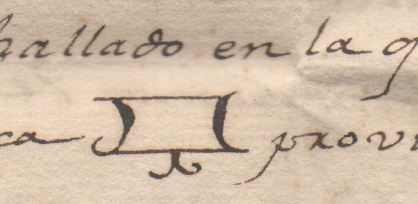 hallado en la q
ca provi